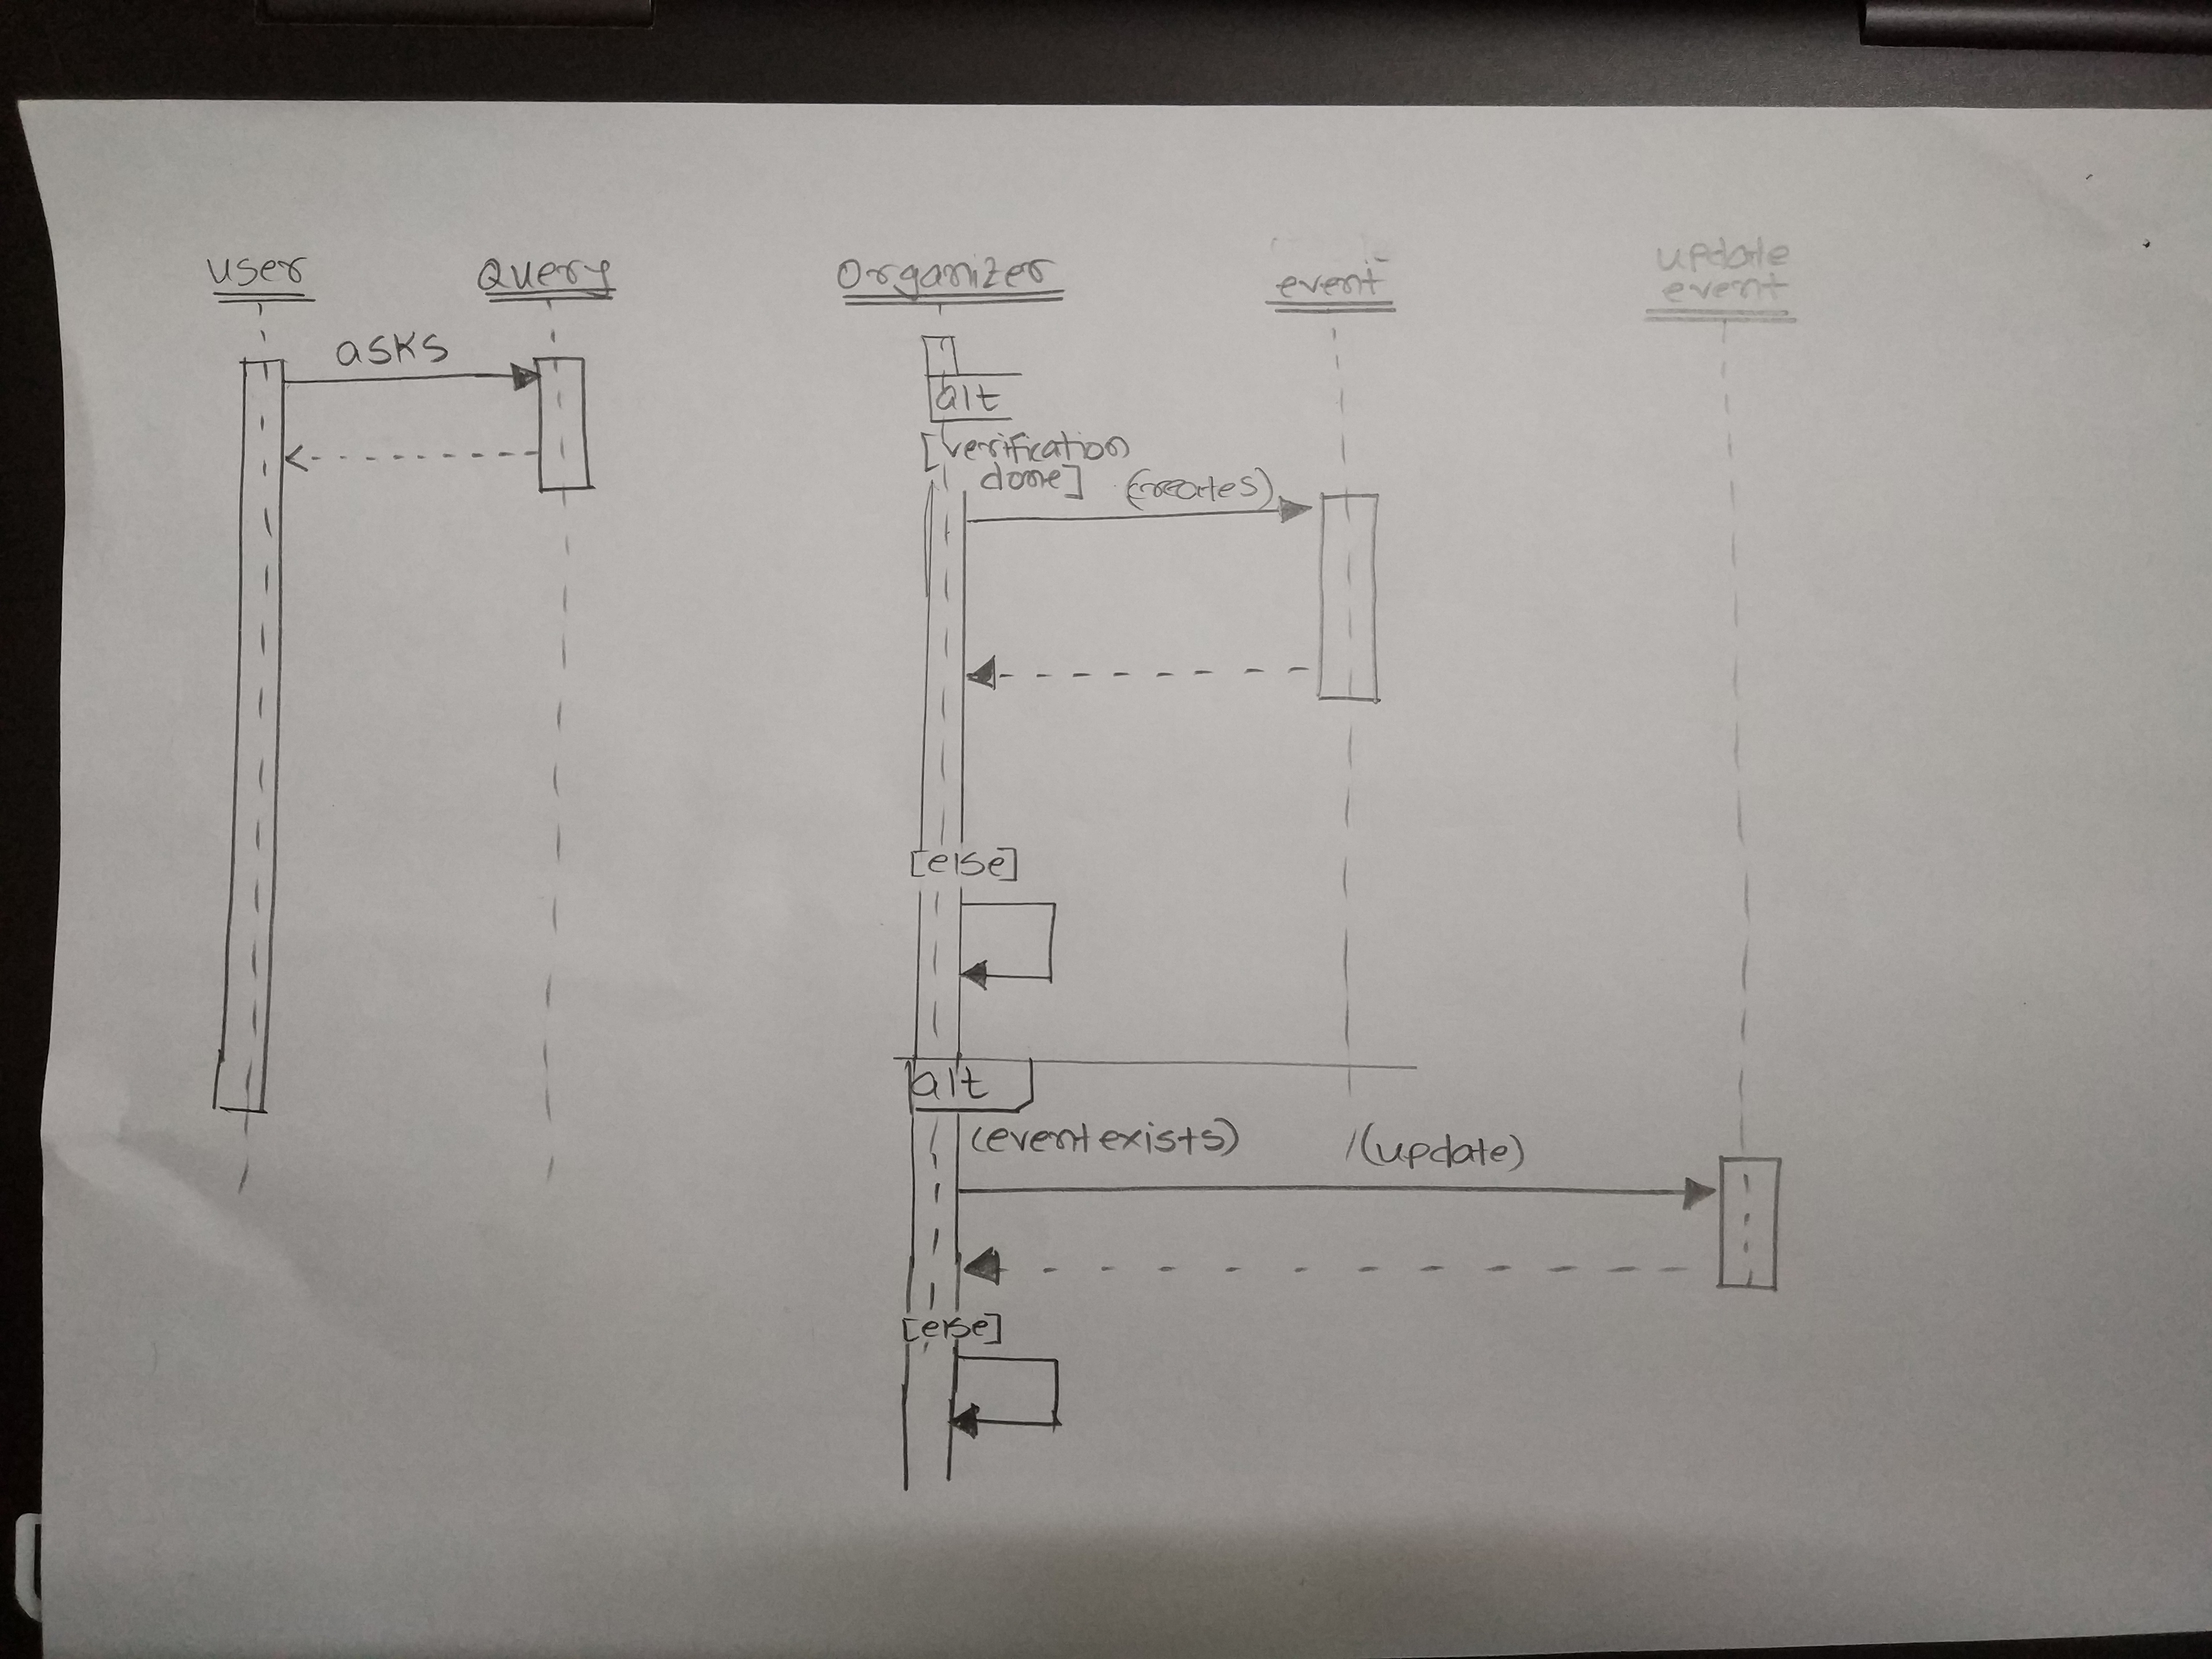 user
Query
Organizer
event
update
event
asks
alt
[verification
done]
(creates)
[else]
alt
(event exists)
/(update)
[else]